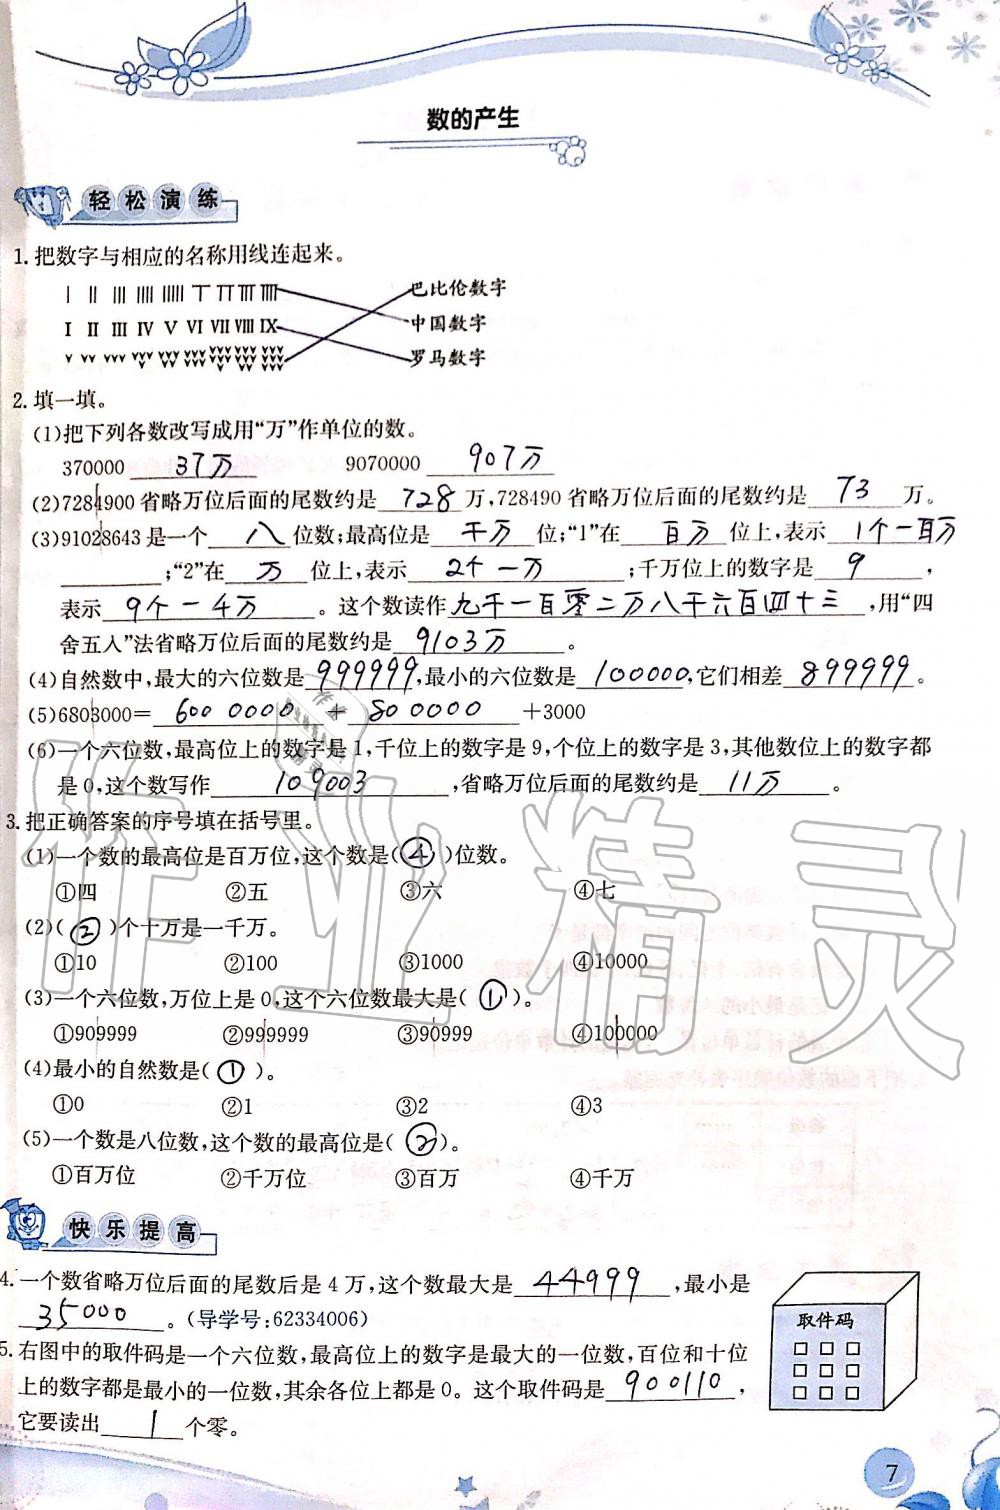 数的产生
轻松演练
1.把数字与相应的名称用线连起来。
巴比伦数字
Ⅰ Ⅱ Ⅲ Ⅳ Ⅴ Ⅵ Ⅶ Ⅷ Ⅸ 中国数字
罗马数字
2.填一填。
(1)把下列各数改写成用“万”作单位的数。
370000 37万 9070000 907万
(2)7284900省略万位后面的尾数约是 728 万,728490省略万位后面的尾数约是 73 万。
(3)91028643是一个 八 位数;最高位是 千万 位;“1”在 百万 位上,表示 1个一百万
;“2”在 万 位上,表示 2个一万 ;千万位上的数字是 9 ,
表示 9个一千万 。这个数读作 九千一百零二万八千六百四十三 ,用“四
舍五入”法省略万位后面的尾数约是 9103万 。
(4)自然数中,最大的六位数是 999999 ,最小的六位数是 100000 ,它们相差 899999 。
(5)6803000= 600 0000 + 80 0000 +3000
(6)一个六位数,最高位上的数字是1,千位上的数字是9,个位上的数字是3,其他数位上的数字都
是0,这个数写作 109003 ,省略万位后面的尾数约是 11万 。
3.把正确答案的序号填在括号里。
(1)一个数的最高位是百万位,这个数是( ④ )位数。
①四 ②五 ③六 ④七
(2)( ② )个十万是一千万。
①10 ②100 ③1000 ④10000
(3)一个六位数,万位上是0,这个六位数最大是( ① )。
①909999 ②999999 ③90999 ④100000
(4)最小的自然数是( ① )。
①0 ②1 ③2 ④3
(5)一个数是八位数,这个数的最高位是( ② )。
①百万位 ②千万位 ③百万 ④千万
快乐提高
4.一个数省略万位后面的尾数后是4万,这个数最大是 44999 ,最小是
35000 。(导学号:62334006)
取件码
5.右图中的取件码是一个六位数,最高位上的数字是最大的一位数,百位和十位
上的数字都是最小的一位数,其余各位上都是0。这个取件码是 900110 ,
它要读出 1 个零。
7
作业精灵